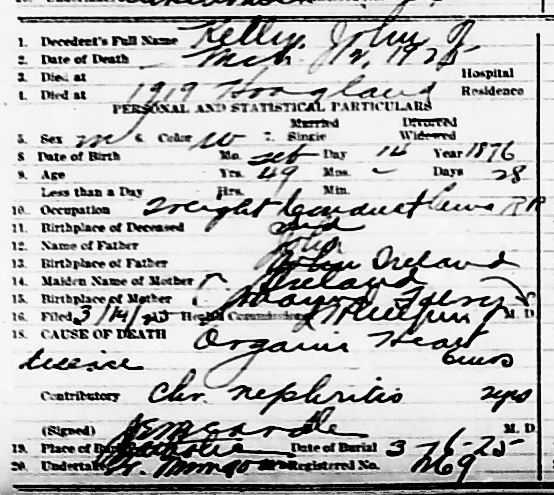 1. Decedent's Full Name Kelly, John J
2. Date of Death Mch 12, 1925
3. Died at Hospital
4. Died at 1919 Hoagland Residence
PERSONAL AND STATISTICAL PARTICULARS
5. Sex m 6. Color w 7. Married Single Divorced Widowed
8 Date of Birth Mo. Feb Day 14 Year 1876
9. Age Yrs. 49 Mos. - Days 28
Less than a Day Hrs. Min.
10. Occupation Freight Conduct RR
11. Birthplace of Deceased Ind
12. Name of Father John
13. Birthplace of Father Ireland
14. Maiden Name of Mother
15. Birthplace of Mother Ireland
16. Filed 3/14/25 Health Commissioner M. D.
18. CAUSE OF DEATH Organic Heart
disease 6mos
Contributory Chr. nephritis 2yrs
(Signed) M. D.
19. Place of Burial Catholic Date of Burial 3-16-25
20. Undertaker Registered No. 269